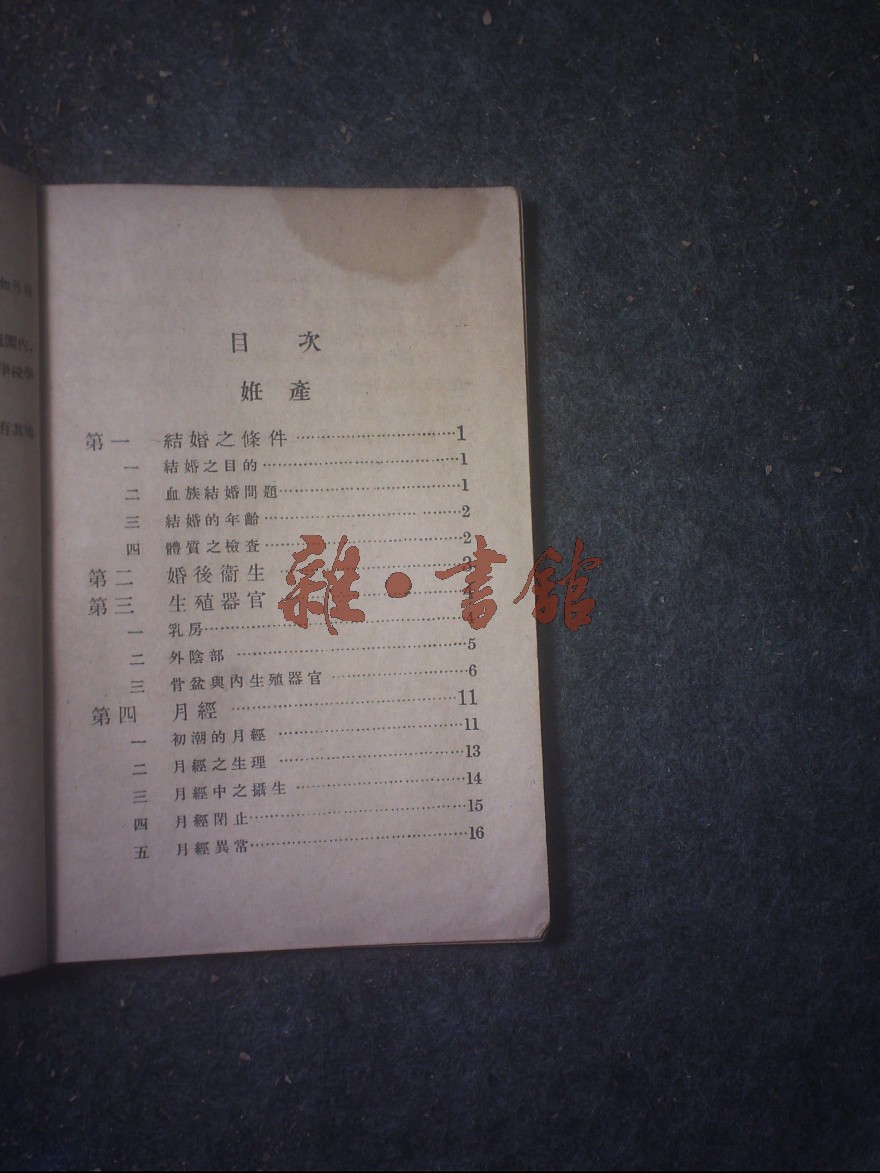 目次
姙產
第一 結婚之條件…………1
一 結婚之目的…………1
二 血族結婚問題…………1
三 結婚的年齡…………2
四 體質之檢查…………2
第二 婚後衞生…………3
第三 生殖器官
一 乳房…………4
二 外陰部…………5
三 骨盆與內生殖器官…………6
第四 月經…………11
一 初潮的月經…………11
二 月經之生理…………13
三 月經中之攝生…………14
四 月經閉止…………15
五 月經異常…………16
雜·書館